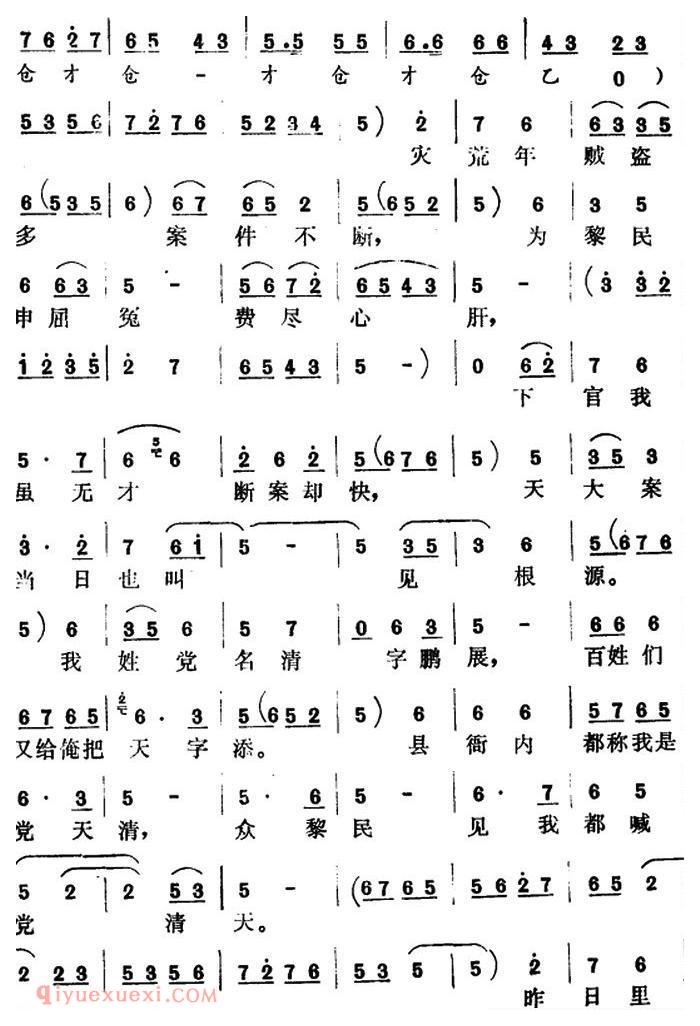 7 6 2 7 | 6 5 4 3 | 5 . 5 5 5 | 6 . 6 6 6 | 4 3 2 3 |
仓 才 仓 - 才 仓 才 仓 乙 0 )
5 3 5 6 | 7 2 7 6 | 5 2 3 4 | 5 ) 2 | 7 6 | 6 3 3 5
灾 荒 年 贼 盗
6 ( 5 3 5 | 6 ) 6 7 | 6 5 2 | 5 ( 6 5 2 | 5 ) 6 | 3 5
多 案 件 不 断, 为 黎 民
6 6 3 | 5 - | 5 6 7 2 | 6 5 4 3 | 5 - | ( 3 3 2
申 屈 冤 费 尽 心 肝,
1 2 3 5 | 2 7 | 6 5 4 3 | 5 - ) | 0 6 2 | 7 6
下 官 我
5 · 7 | 6 6 | 2 6 2 | 5 ( 6 7 6 | 5 ) 5 | 3 5 3
虽 无 才 断 案 却 快, 天 大 案
3 · 2 | 7 6 1 | 5 - | 5 3 5 | 3 6 | 5 ( 6 7 6
当 日 也 叫 见 根 源。
5 ) 6 | 3 5 6 | 5 7 | 0 6 3 | 5 - | 6 6 6
我 姓 党 名 清 字 鹏 展, 百 姓 们
6 7 6 5 | 6 · 3 | 5 ( 6 5 2 | 5 ) 6 | 6 6 | 5 7 6 5
又 给 俺 把 天 字 添。 县 衙 内 都 称 我 是
6 · 3 | 5 - | 5 · 6 | 5 - | 6 · 7 | 6 5
党 天 清, 众 黎 民 见 我 都 喊
5 2 | 2 5 3 | 5 - | ( 6 7 6 5 | 5 6 2 7 | 6 5 2
党 清 天。
2 2 3 | 5 3 5 6 | 7 2 7 6 | 5 3 5 | 5 ) 2 | 7 6
昨 日 里
qiyuexuexi.com